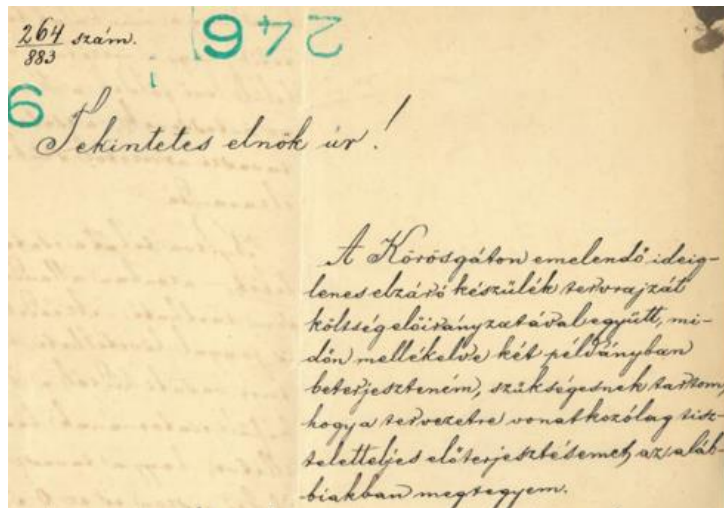 264/883 szám.
246
9
Tekintetes elnök úr!
A Körösgáton emelendő ideig-
lenes elzáró készülék tervrajzát
költség előirányzatával együtt, mi-
dőn mellékelve két példányban
beterjeszteném, szükségesnek tartom,
hogy a tervezetre vonatkozólag tisz-
teletteljes előterjesztésemet, az aláb-
biakban megtegyem.